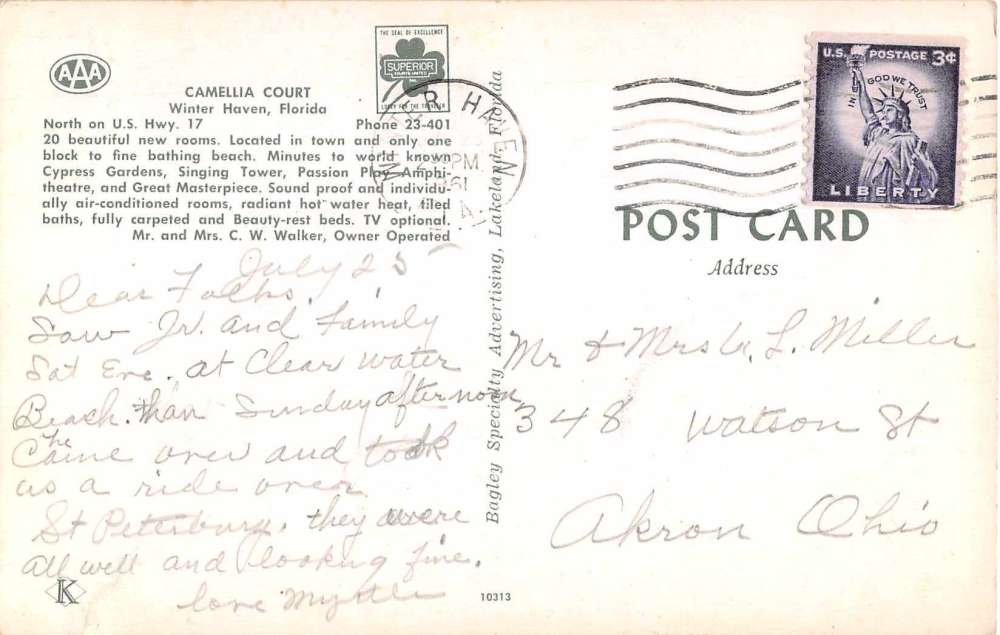 AAA
THE SEAL OF EXCELLENCE
SUPERIOR
CAMELLIA COURT
Winter Haven, Florida
North on U.S. Hwy. 17 Phone 23-401
20 beautiful new rooms. Located in town and only one
block to fine bathing beach. Minutes to world known
Cypress Gardens, Singing Tower, Passion Play Amphi-
theatre, and Great Masterpiece. Sound proof and individu-
ally air-conditioned rooms, radiant hot water heat, tiled
baths, fully carpeted and Beauty-rest beds. TV optional.
Mr. and Mrs. C. W. Walker, Owner Operated
July 25
Dear Folks.
Saw Jr. and family
Sat Eve. at Clear water
Beach. than Sunday afternoon
he
Came over and took
us a ride over
St Petersburg. they were
all well and looking fine.
love Myrtle
K
10313
Bagley Specialty Advertising, Lakeland, Florida
WINTER HAVEN
PM
1961
U.S. POSTAGE 3¢
IN GOD WE TRUST
LIBERTY
POST CARD
Address
Mr & Mrs L. Miller
348 Watson St
Akron Ohio